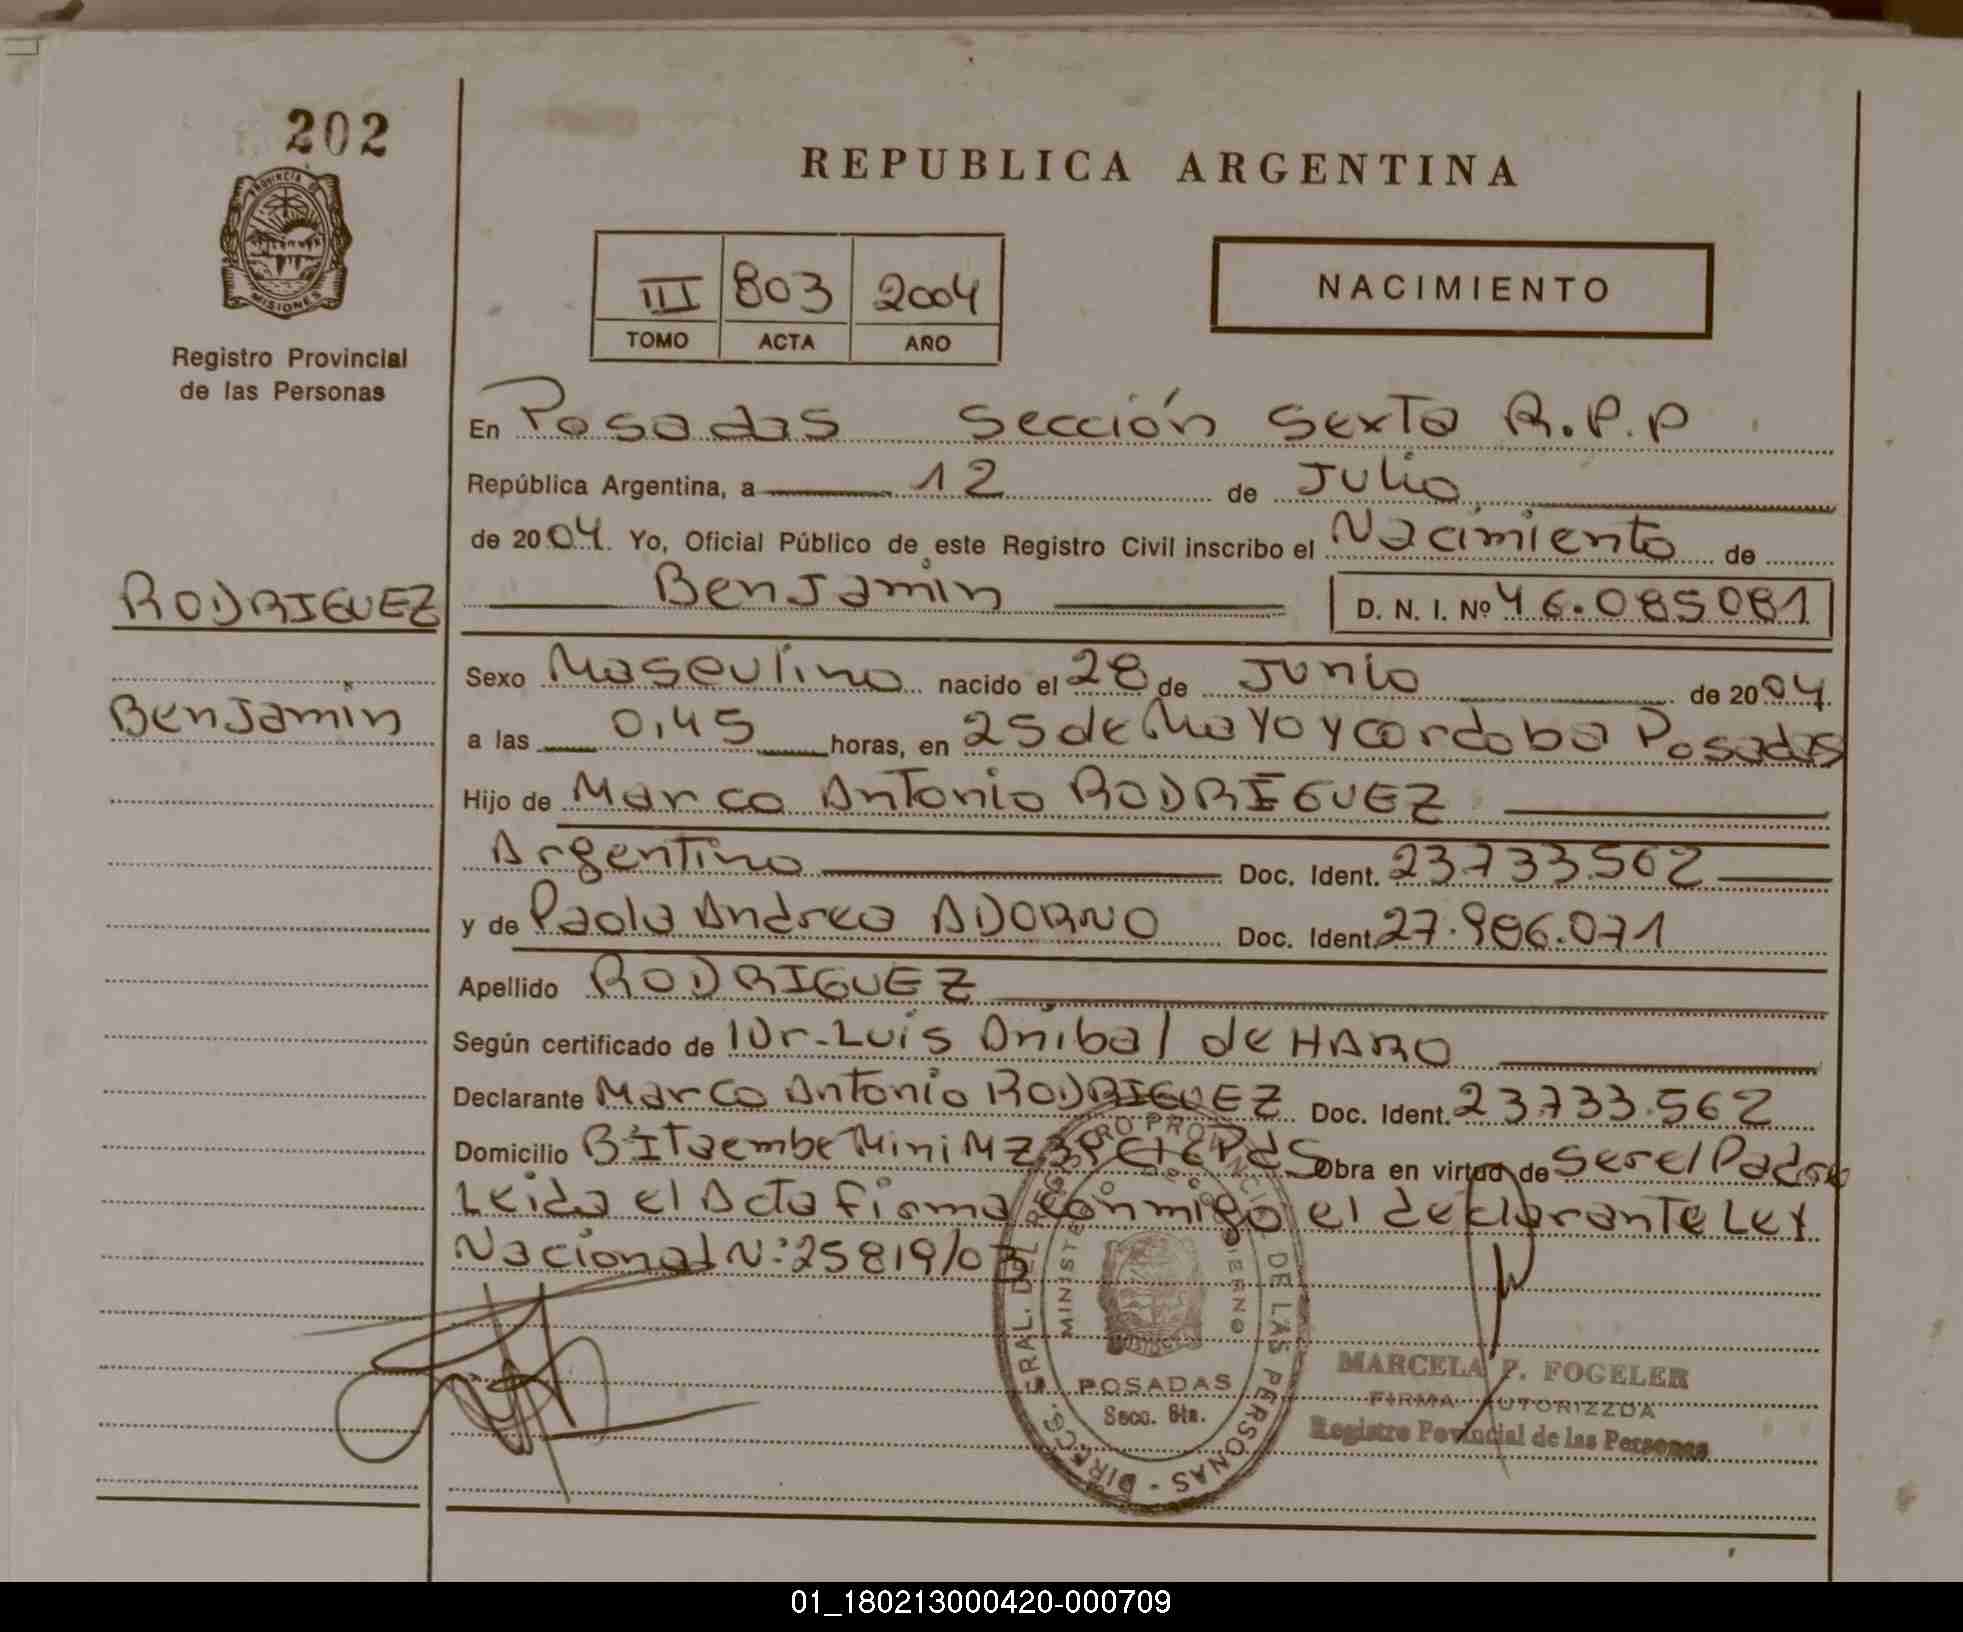 202
PROVINCIA DE
MISIONES
Registro Provincial
de las Personas
RODRIGUEZ
Benjamin
REPUBLICA ARGENTINA
III 803 2004
TOMO ACTA AÑO
NACIMIENTO
En Posadas Sección Sexta R.P.P
República Argentina, a 12 de Julio
de 2004. Yo, Oficial Público de este Registro Civil inscribo el Nacimiento de
Benjamin D. N. I. Nº 46.085081
Sexo Masculino nacido el 28 de Junio de 2004.
a las 0,45 horas, en 25 de Mayo y cordoba Posadas
Hijo de Marco Antonio RODRIGUEZ
Argentino Doc. Ident. 23.733.562
y de Paola Andrea ADORNO Doc. Ident. 27.986.071
Apellido RODRIGUEZ
Según certificado de Dr. Luis Anibal de HARO
Declarante Marco Antonio RODRIGUEZ Doc. Ident. 23.733.562
Domicilio B Itaembe Mini MZ Pds Obra en virtud de ser el Padre
Leida el Acta firma conmigo el declarante Ley
Nacional N: 25819/03
DIRECC. GRAL. DEL REGISTRO PROVINCIAL DE LAS PERSONAS
MINISTERIO GOBIERNO
POSADAS
Secc. 6ta.
MARCELA P. FOGELER
FIRMA AUTORIZZDA
Registro Povincial de las Personas
01_180213000420-000709